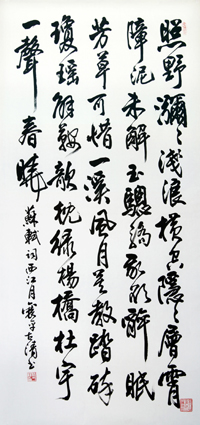 照野瀰〻淺浪橫空隱〻層霄
障泥未解玉驄驕我欲醉眠
芳草可惜一溪風月莫教踏碎
瓊瑤解鞍欹枕綠楊橋杜宇
一聲春曉
蘇軾詞西江月